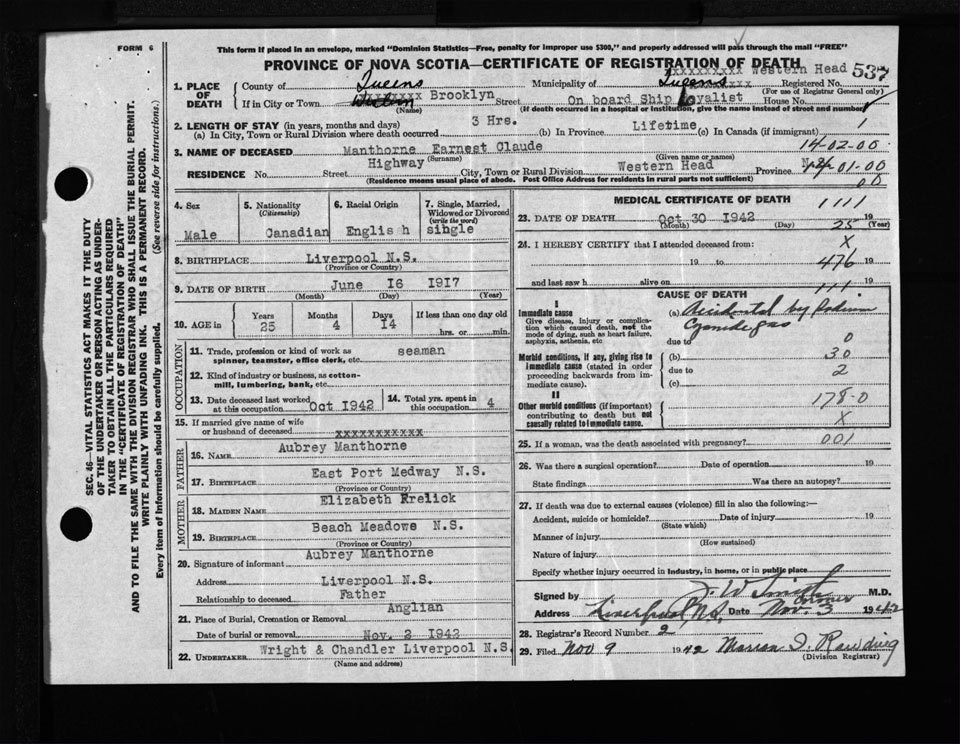 FORM 6
This form if placed in an envelope, marked "Dominion Statistics—Free, penalty for improper use $300," and properly addressed will pass through the mail "FREE"
PROVINCE OF NOVA SCOTIA—CERTIFICATE OF REGISTRATION OF DEATH
xxxxxxxxx Western Head 537
1. PLACE OF DEATH County of Queens Municipality of Queens Registered No.
(For use of Registrar General only)
If in City or Town xxxxxx Brooklyn Street On board Ship Loyalist House No.
(Name) (If death occurred in a hospital or institution, give the name instead of street and number)
2. LENGTH OF STAY (in years, months and days)
(a) In City, Town or Rural Division where death occurred 3 Hrs. (b) In Province Lifetime (c) In Canada (if immigrant) 1
14-02-00
3. NAME OF DECEASED Manthorne Earnest Claude
(Surname) (Given name or names)
RESIDENCE No. Highway Street City, Town or Rural Division Western Head Province 01-00
(Residence means usual place of abode. Post Office Address for residents in rural parts not sufficient) 00
4. Sex
Male
5. Nationality
(Citizenship)
Canadian
6. Racial Origin
Englis h
7. Single, Married, Widowed or Divorced
(write the word)
single
8. BIRTHPLACE Liverpool N.S.
(Province or Country)
9. DATE OF BIRTH June 16 1917
(Month) (Day) (Year)
10. AGE in Years Months Days If less than one day old
25 4 14 hrs. or min.
OCCUPATION
11. Trade, profession or kind of work as spinner, teamster, office clerk, etc. seaman
12. Kind of industry or business, as cotton-mill, lumbering, bank, etc.
13. Date deceased last worked at this occupation Oct 1942
14. Total yrs. spent in this occupation 4
15. If married give name of wife or husband of deceased xxxxxxxxxxx
FATHER
16. NAME Aubrey Manthorne
17. BIRTHPLACE East Port Medway N.S.
(Province or Country)
MOTHER
18. MAIDEN NAME Elizabeth Frelick
19. BIRTHPLACE Beach Meadowe N.S.
(Province or Country)
20. Signature of informant Aubrey Manthorne
Address Liverpool N.S.
Relationship to deceased Father
21. Place of Burial, Cremation or Removal Anglian
Date of burial or removal Nov. 2 1942
22. UNDERTAKER Wright & Chandler Liverpool N.S.
(Name and address)
MEDICAL CERTIFICATE OF DEATH 1111
23. DATE OF DEATH Oct 30 1942 19
(Month) (Day) 25 (Year)
24. I HEREBY CERTIFY that I attended deceased from: X
19 to 476 19
and last saw h alive on 111 19
CAUSE OF DEATH
I
Immediate cause
Give disease, injury or complication which caused death, not the mode of dying, such as heart failure, asphyxia, asthenia, etc
(a) Accidental by Sodium
Cyanide gas
due to 0
Morbid conditions, if any, giving rise to immediate cause (stated in order proceeding backwards from immediate cause).
(b) 30
due to 2
(c)
II
Other morbid conditions (if important) contributing to death but not causally related to immediate cause.
178-0
X
25. If a woman, was the death associated with pregnancy? 001
26. Was there a surgical operation? Date of operation 19
State findings Was there an autopsy?
27. If death was due to external causes (violence) fill in also the following:—
Accident, suicide or homicide? Date of injury 19
(State which)
Manner of injury
(How sustained)
Nature of injury
Specify whether injury occurred in industry, in home, or in public place
Signed by J. W Smith M.D.
Coroner
Address Liverpool, N.S. Date Nov. 3 1942
28. Registrar's Record Number 2
29. Filed Nov 9 1942
(Division Registrar)
SEC. 46—VITAL STATISTICS ACT MAKES IT THE DUTY OF THE UNDERTAKER OR PERSON ACTING AS UNDERTAKER TO OBTAIN ALL THE PARTICULARS REQUIRED IN THE "CERTIFICATE OF REGISTRATION OF DEATH" AND TO FILE THE SAME WITH THE DIVISION REGISTRAR WHO SHALL ISSUE THE BURIAL PERMIT.
WRITE PLAINLY WITH UNFADING INK. THIS IS A PERMANENT RECORD.
Every item of Information should be carefully supplied. (See reverse side for instructions.)